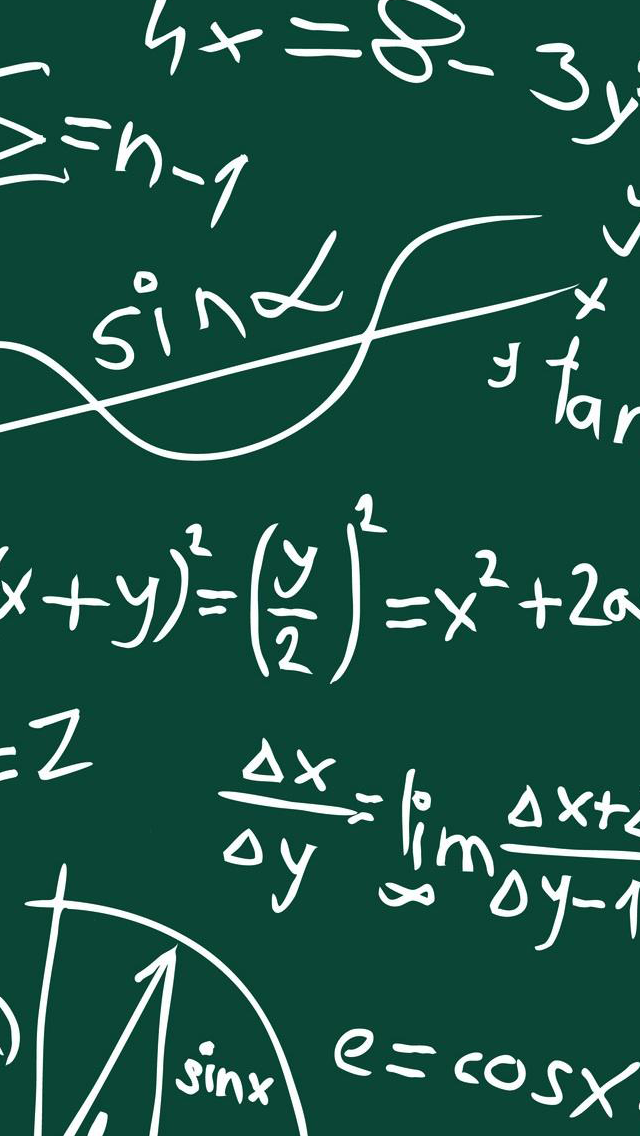 4x = 8 - 3y
Σ = n - 1
sin α
y
x
y tan
(x + y)² = (y/2)² = x² + 2a
= Z
Δx/Δy = lim ∞ Δx+Δ/Δy-1
sinx
e = cosx